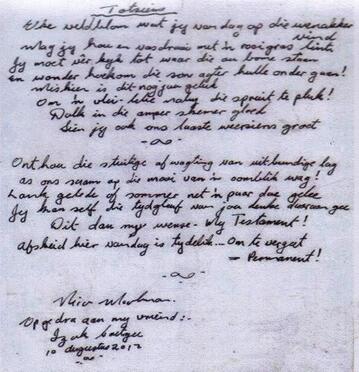 Totsiens
Elke veldblom wat jy vandag op die werfakker
vind
Mag jy hou en vasdraai met 'n rooigras linte
Jy moet vêr kyk tot waar die au bome staan
En wonder hoekom die son agter hulle onder gaan!
Miskien is dit nog jou geluk
Om 'n vlei-lelie naby die spruit te pluk!
Dalk in die amper skemer gloed
Sien jy ook ons laaste weersiens groet
Onthou die stuitige afwagting van uitbundige lag
as ons saam op die mooi van 'n oomblik wag!
Lank gelede of sommer net 'n paar dae gelee
Jy kan self die tydgleuf van jou denke daaraan gee
Dit dan my wense - My Testament!
Afskeid hier vandag is tydelik... Om te vergeet
- Permanent!
Opgedra aan my vriend:-
Izak Coetzee
10 Augustus 2012